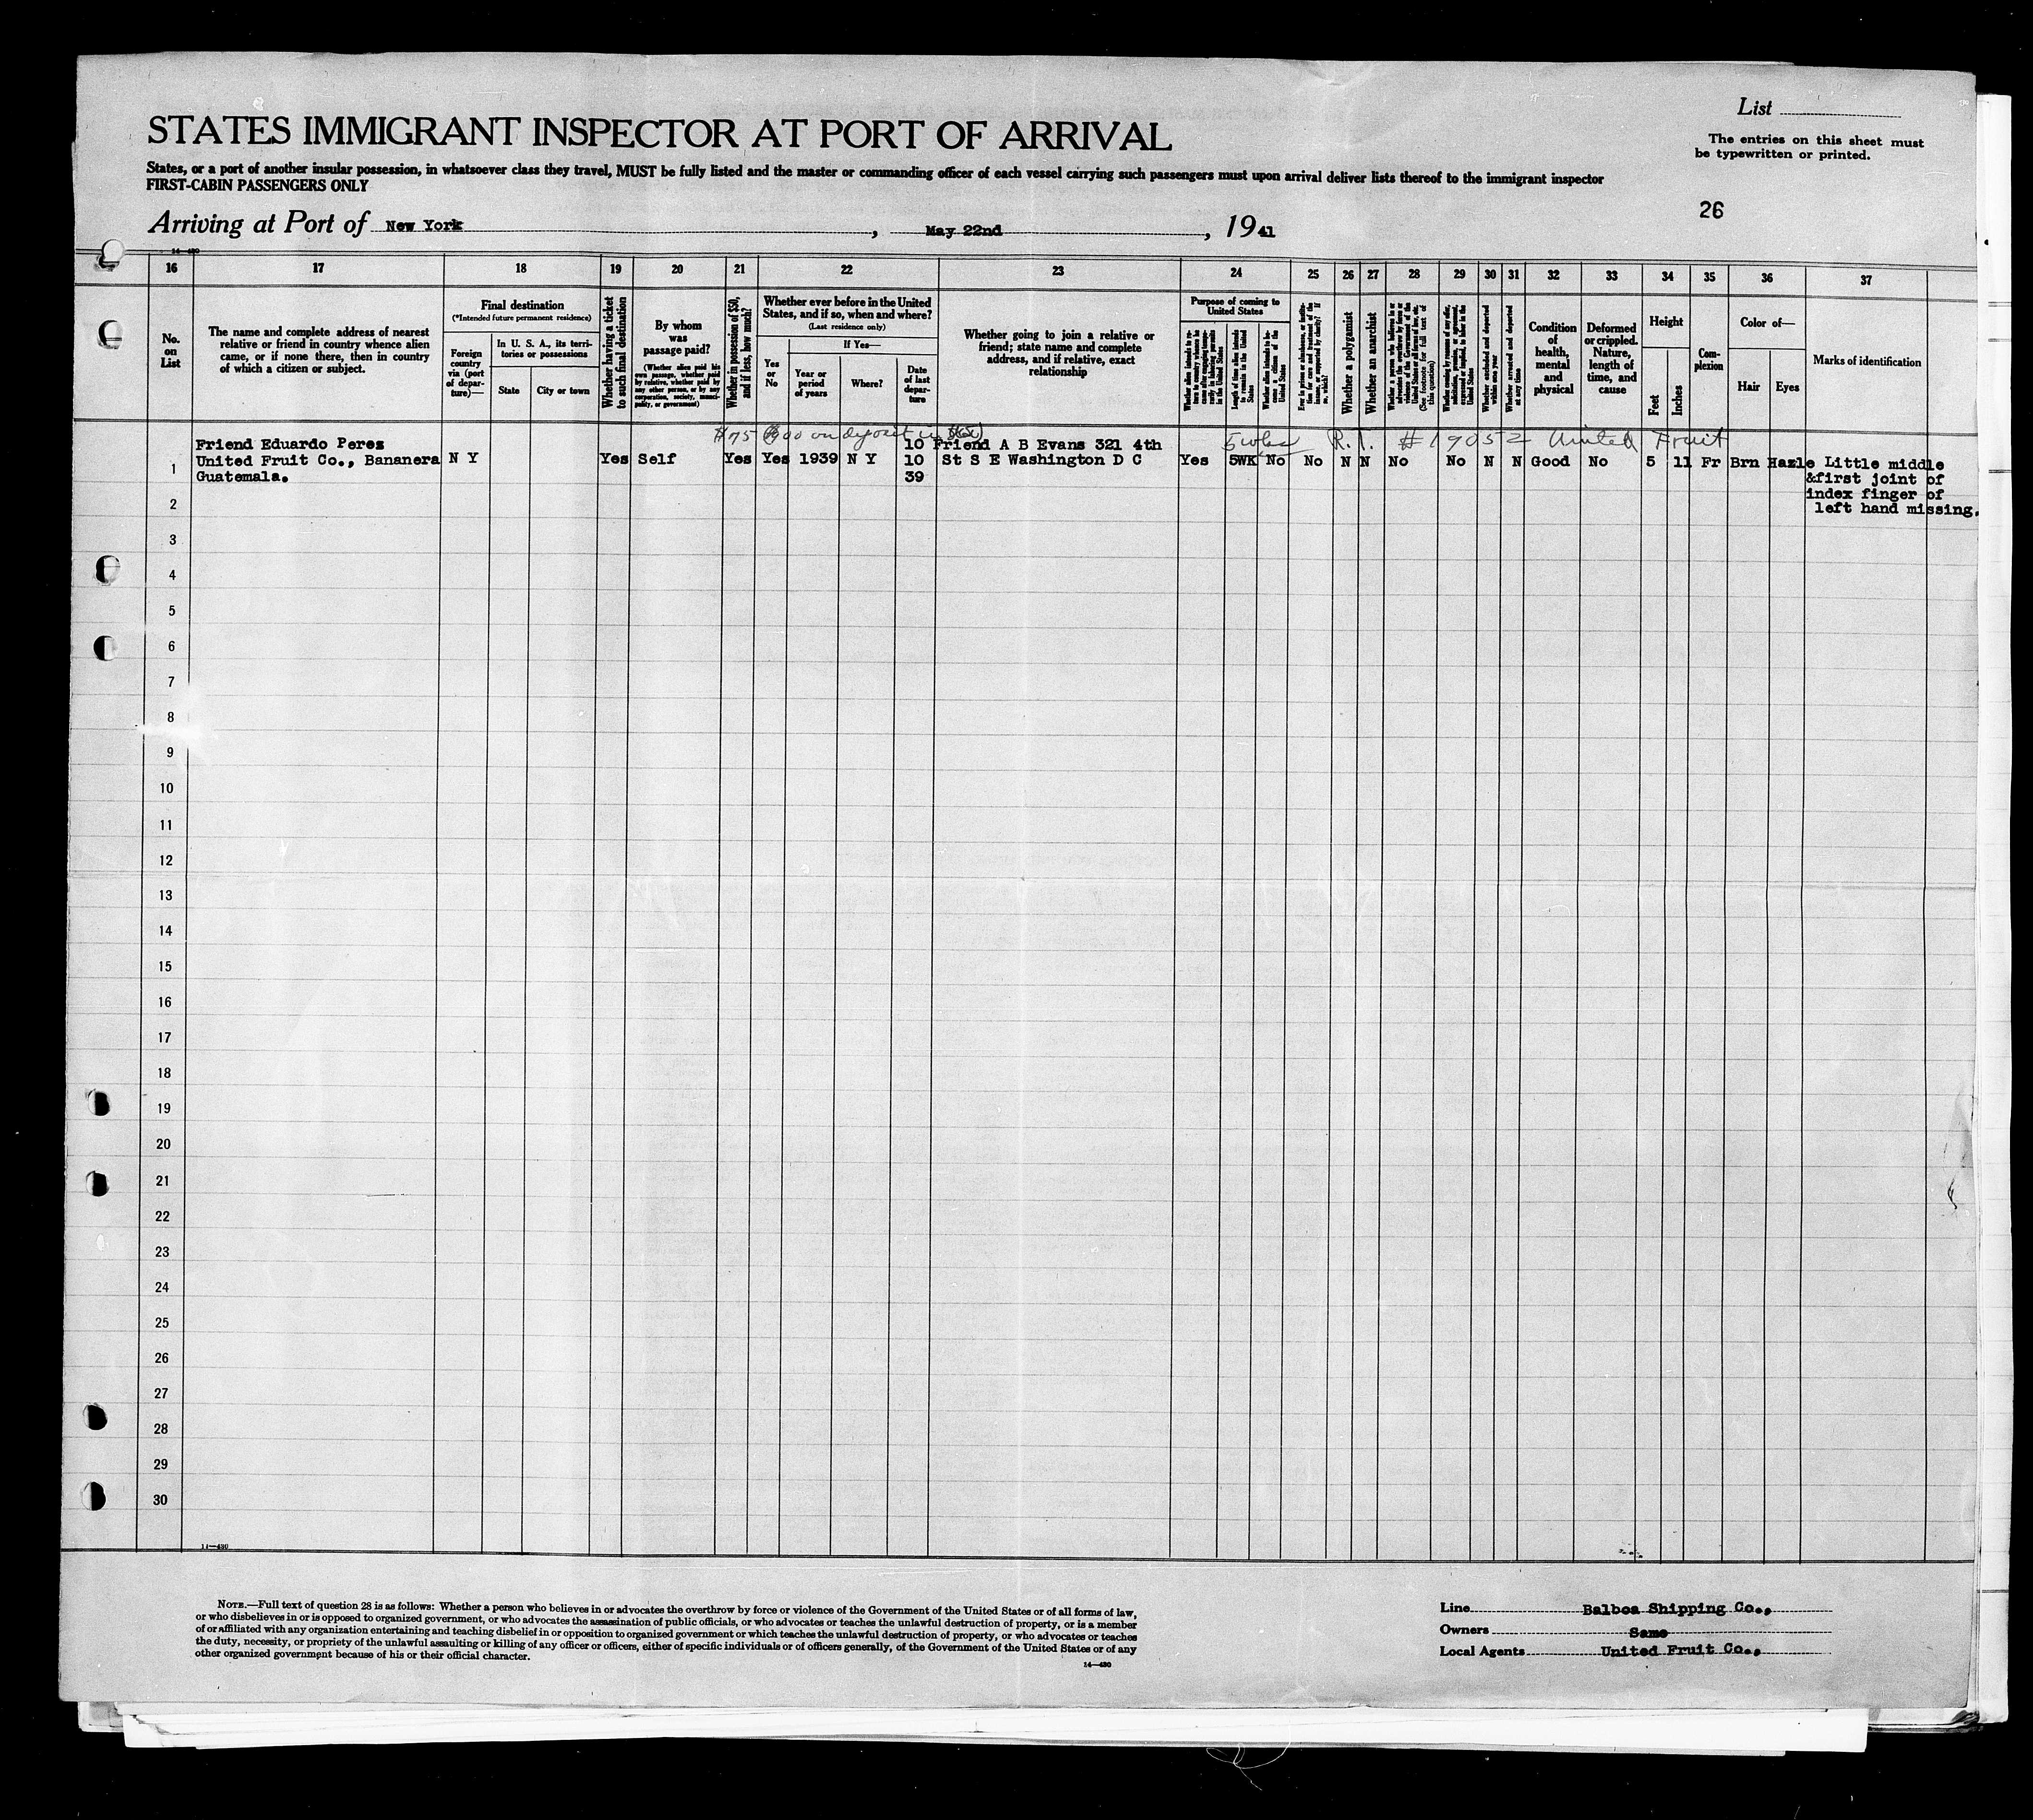 List
STATES IMMIGRANT INSPECTOR AT PORT OF ARRIVAL
The entries on this sheet must
be typewritten or printed.
States, or a port of another insular possession, in whatsoever class they travel, MUST be fully listed and the master or commanding officer of each vessel carrying such passengers must upon arrival deliver lists thereof to the immigrant inspector
FIRST-CABIN PASSENGERS ONLY
26
Arriving at Port of New York, May 22nd, 1941
14-430
16 17 18 19 20 21 22 23 24 25 26 27 28 29 30 31 32 33 34 35 36 37
No. on List
The name and complete address of nearest
relative or friend in country whence alien
came, or if none there, then in country
of which a citizen or subject.
Final destination
(*Intended future permanent residence)
Foreign country via (port of departure)—
In U. S. A., its territories or possessions
State
City or town
Whether having a ticket to such final destination
By whom was passage paid?
(Whether alien paid his own passage, whether paid by relative, whether paid by any other person, or by any corporation, society, municipality, or government)
Whether in possession of $50, and if less, how much?
Whether ever before in the United States, and if so, when and where?
(Last residence only)
Yes or No
If Yes—
Year or period of years
Where?
Date of last departure
Whether going to join a relative or
friend; state name and complete
address, and if relative, exact
relationship
Purpose of coming to United States
Whether alien intends to return to country whence he came after engaging temporarily in laboring pursuits in the United States
Length of time alien intends to remain in the United States
Whether alien intends to become a citizen of the United States
Ever in prison or almshouse, or institution for care and treatment of the insane, or supported by charity? If so, which?
Whether a polygamist
Whether an anarchist
Whether a person who believes in or advocates the overthrow by force or violence of the Government of the United States or all forms of law, etc. (See footnote for full text of this question)
Whether coming by reason of any offer, solicitation, promise, or agreement, expressed or implied, to labor in the United States
Whether excluded and deported within one year
Whether arrested and deported at any time
Condition of health, mental and physical
Deformed or crippled. Nature, length of time, and cause
Height
Feet
Inches
Complexion
Color of—
Hair
Eyes
Marks of identification
$75 on deposit in
5 wks R.T. #19052 United Fruit
Friend Eduardo Peres 10 Friend A B Evans 321 4th
1 United Fruit Co., Bananera N Y Yes Self Yes Yes 1939 N Y 10 St S E Washington D C Yes 5WK No No N N No No N N Good No 5 11 Fr Brn Hazle Little middle
Guatemala. 39 &first joint of
index finger of
2 left hand missing.
3
4
5
6
7
8
9
10
11
12
13
14
15
16
17
18
19
20
21
22
23
24
25
26
27
28
29
30
14-430
NOTE.—Full text of question 28 is as follows: Whether a person who believes in or advocates the overthrow by force or violence of the Government of the United States or of all forms of law,
or who disbelieves in or is opposed to organized government, or who advocates the assassination of public officials, or who advocates or teaches the unlawful destruction of property, or is a member
of or affiliated with any organization entertaining and teaching disbelief in or opposition to organized government or which teaches the unlawful destruction of property, or who advocates or teaches
the duty, necessity, or propriety of the unlawful assaulting or killing of any officer or officers, either of specific individuals or of officers generally, of the Government of the United States or of any
other organized government because of his or their official character.
14-430
Line Balboa Shipping Co.,
Owners Same
Local Agents United Fruit Co.,